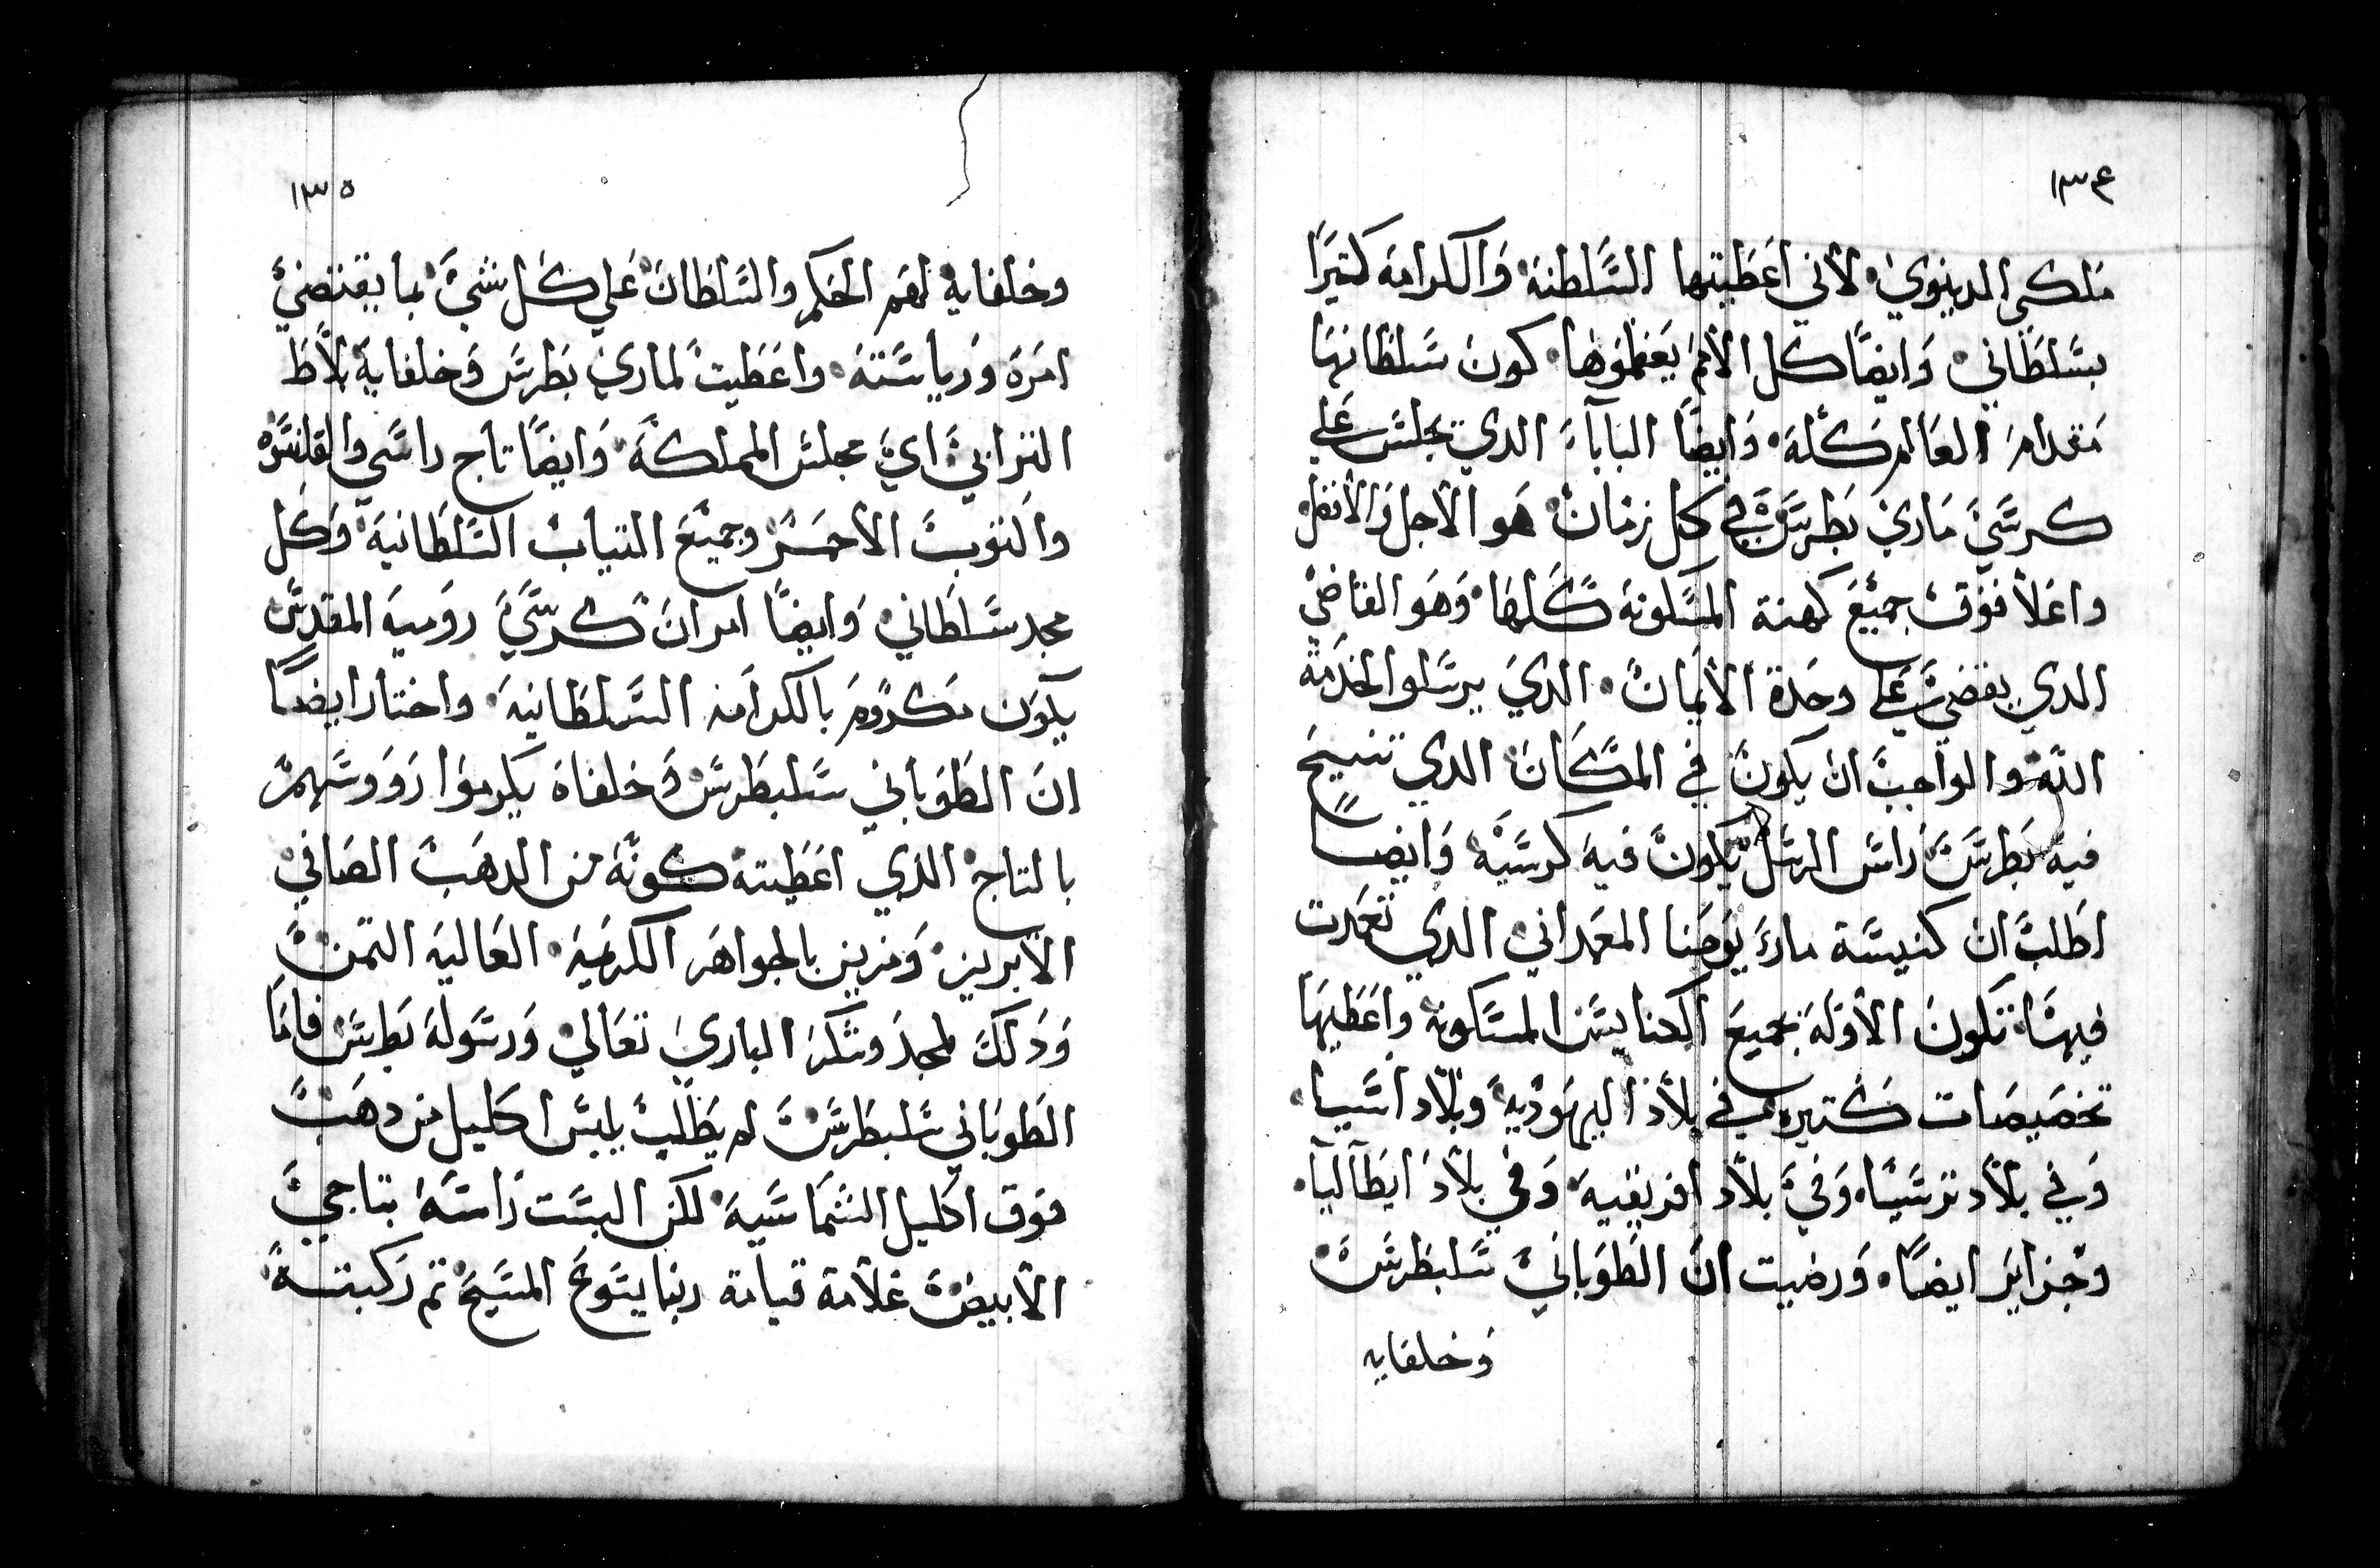 ١٣٤
ملكي الدينوي لاني اعطيتها السلطنة والكرامة كتيرًا
بسلطاني وايضًا كل الأمم يعظموها كون سلطانها
مقدام العالم كله وايضًا الباباء الدي تجلس علي
كرسي ماري بطرس في كل زمان هو الاجل والأفضل
واعلا فوق جميع كهنة المسكونة كلها وهو القاضي
الدي يقضي علي وحدة الأيمان الدي يرسلوا لخدمة
الله والواجب ان يكون في المكان الدي تنيح
فيه بطرس راس الرسل يكون فيه كرسيه وايضًا
اطلب ان كنيسة ماري يوحنا المعمداني الدي تعمدت
فيها تكون الأوله بجميع الكنايس المسكونة واعطيها
تخصيصات كتيره في بلاد اليهودية وبلاد اسيا
وفي بلاد ترسيا وفي بلاد افريقيه وفي بلاد ايطاليا
وجزاير ايضًا ورضيت ان الطوباني سلبطرس
وخلفايه
١٣٥
وخلفايه لهم الحكم والسلطان علي كل شي بما يقتضي
امره ورياسته واعطيت لماري بطرس وخلفايه بلاط
التراني اي مجلس المملكة وايضًا تاج راسي والقلنسره
والتوب الأحمر وجميع التياب السلطانية وكل
مجد سلطاني وايضًا امر ان كرسي رومية المقدس
يكون مكروم بالكرامه السلطانية واختار ايضًا
ان الطوباني سلبطرس وخلفاه يكرموا رووسهم
بالتاج الذي اعطيته كونه من الدهب الصافي
الأبريز ومزين بالجواهر الكرمية العالية التمن
ودلك لمجد وشكر الباري تعالي ورسوله بطرس فاما
الطوباني سلبطرس لم يطلب يلبس اكليل من دهب
فوق اكليل الشماسية لكن البست راسه بتاجي
الأبيض علامة قيامة ربنا يسوع المسيح تم ركبته